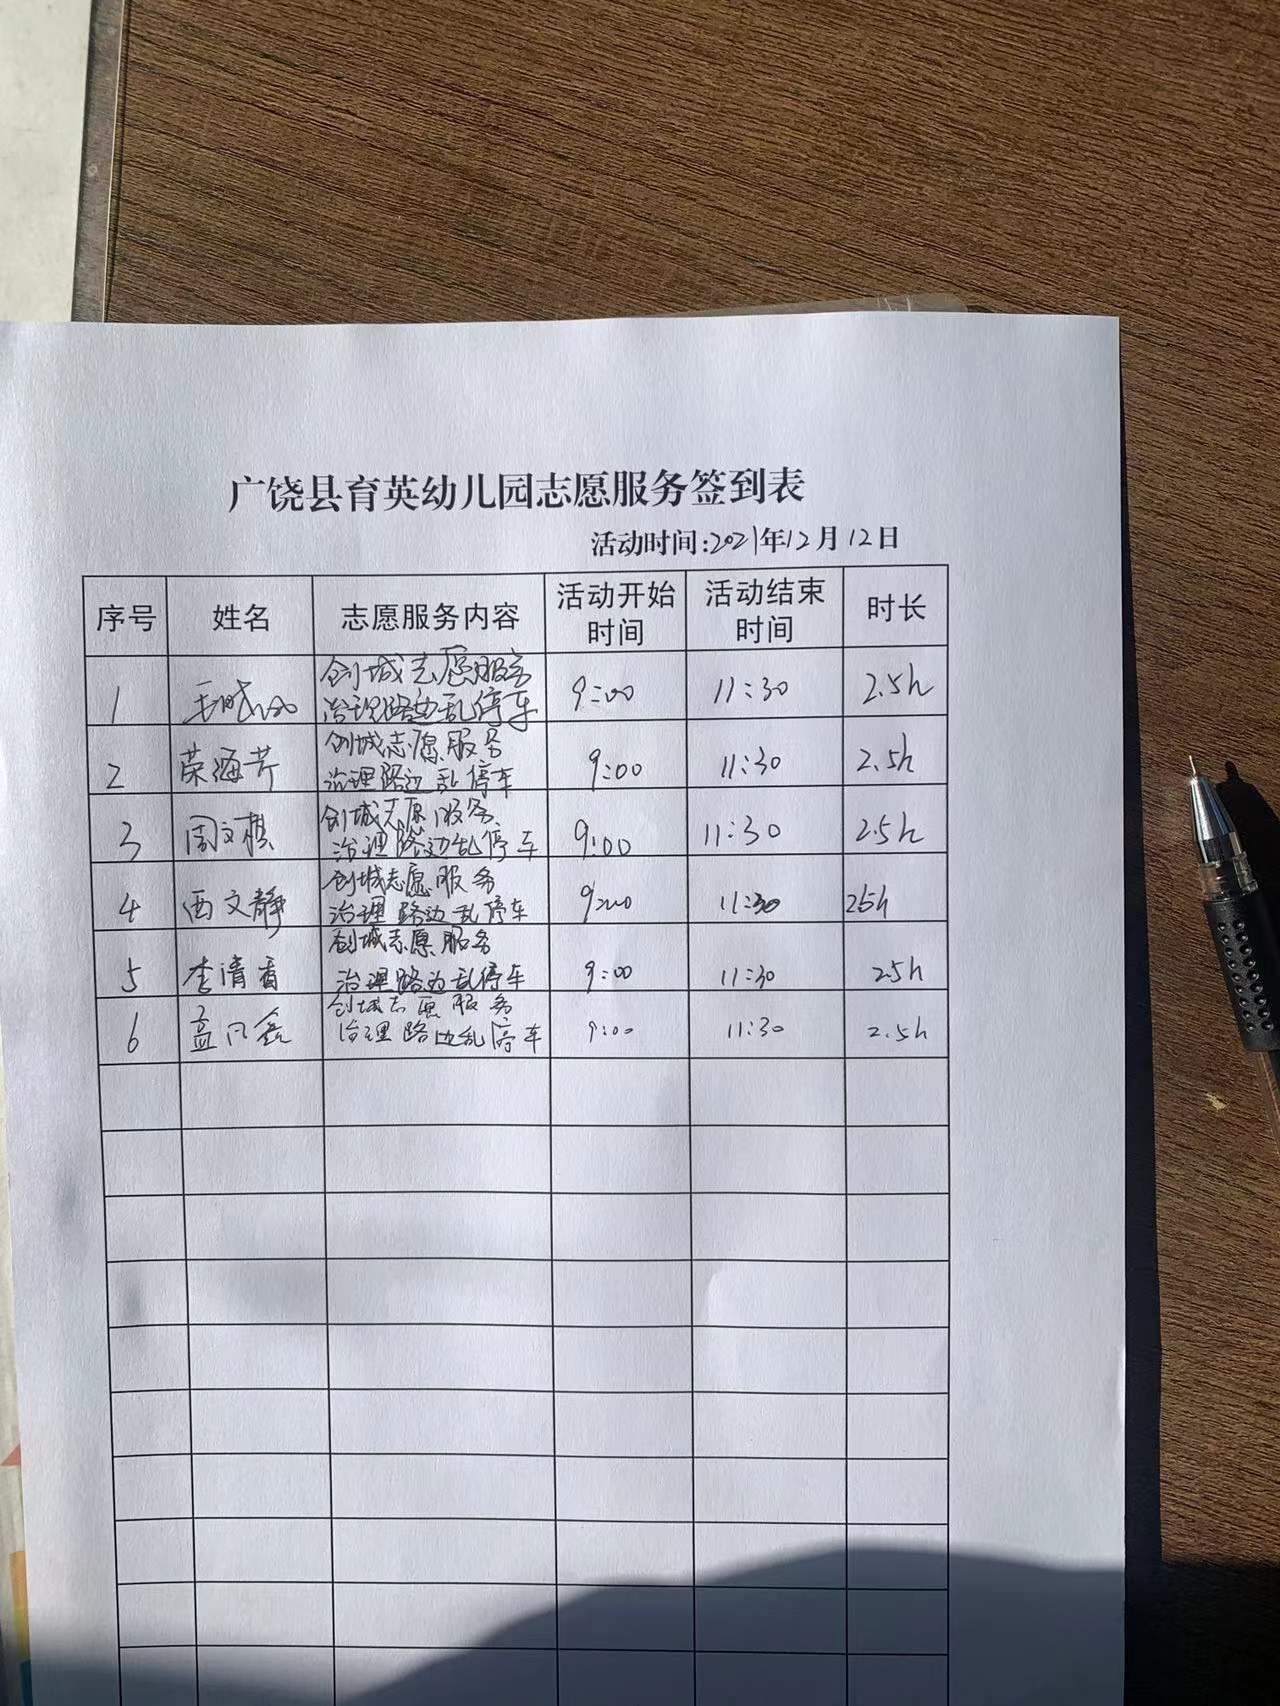 广饶县育英幼儿园志愿服务签到表
活动时间:2021年12月12日
序号 姓名 志愿服务内容 活动开始时间 活动结束时间 时长
1 创城志愿服务 9:00 11:30 2.5h
治理路边乱停车
2 荣海芹 创城志愿服务 9:00 11:30 2.5h
治理路边乱停车
3 周文棋 创城志愿服务 9:00 11:30 2.5h
治理路边乱停车
4 西文静 创城志愿服务 9:00 11:30 25h
治理路边乱停车
5 李清香 创城志愿服务 9:00 11:30 2.5h
治理路边乱停车
6 创城志愿服务 9:00 11:30 2.5h
治理路边乱停车